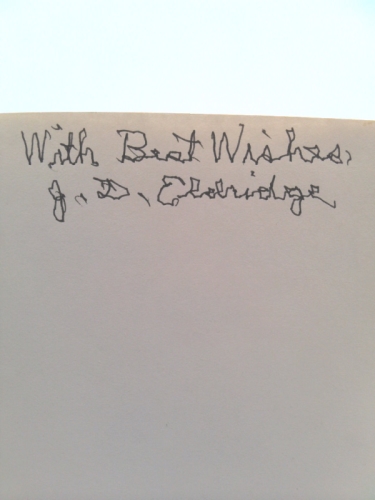 With Best Wishes,
J. D. Eldridge